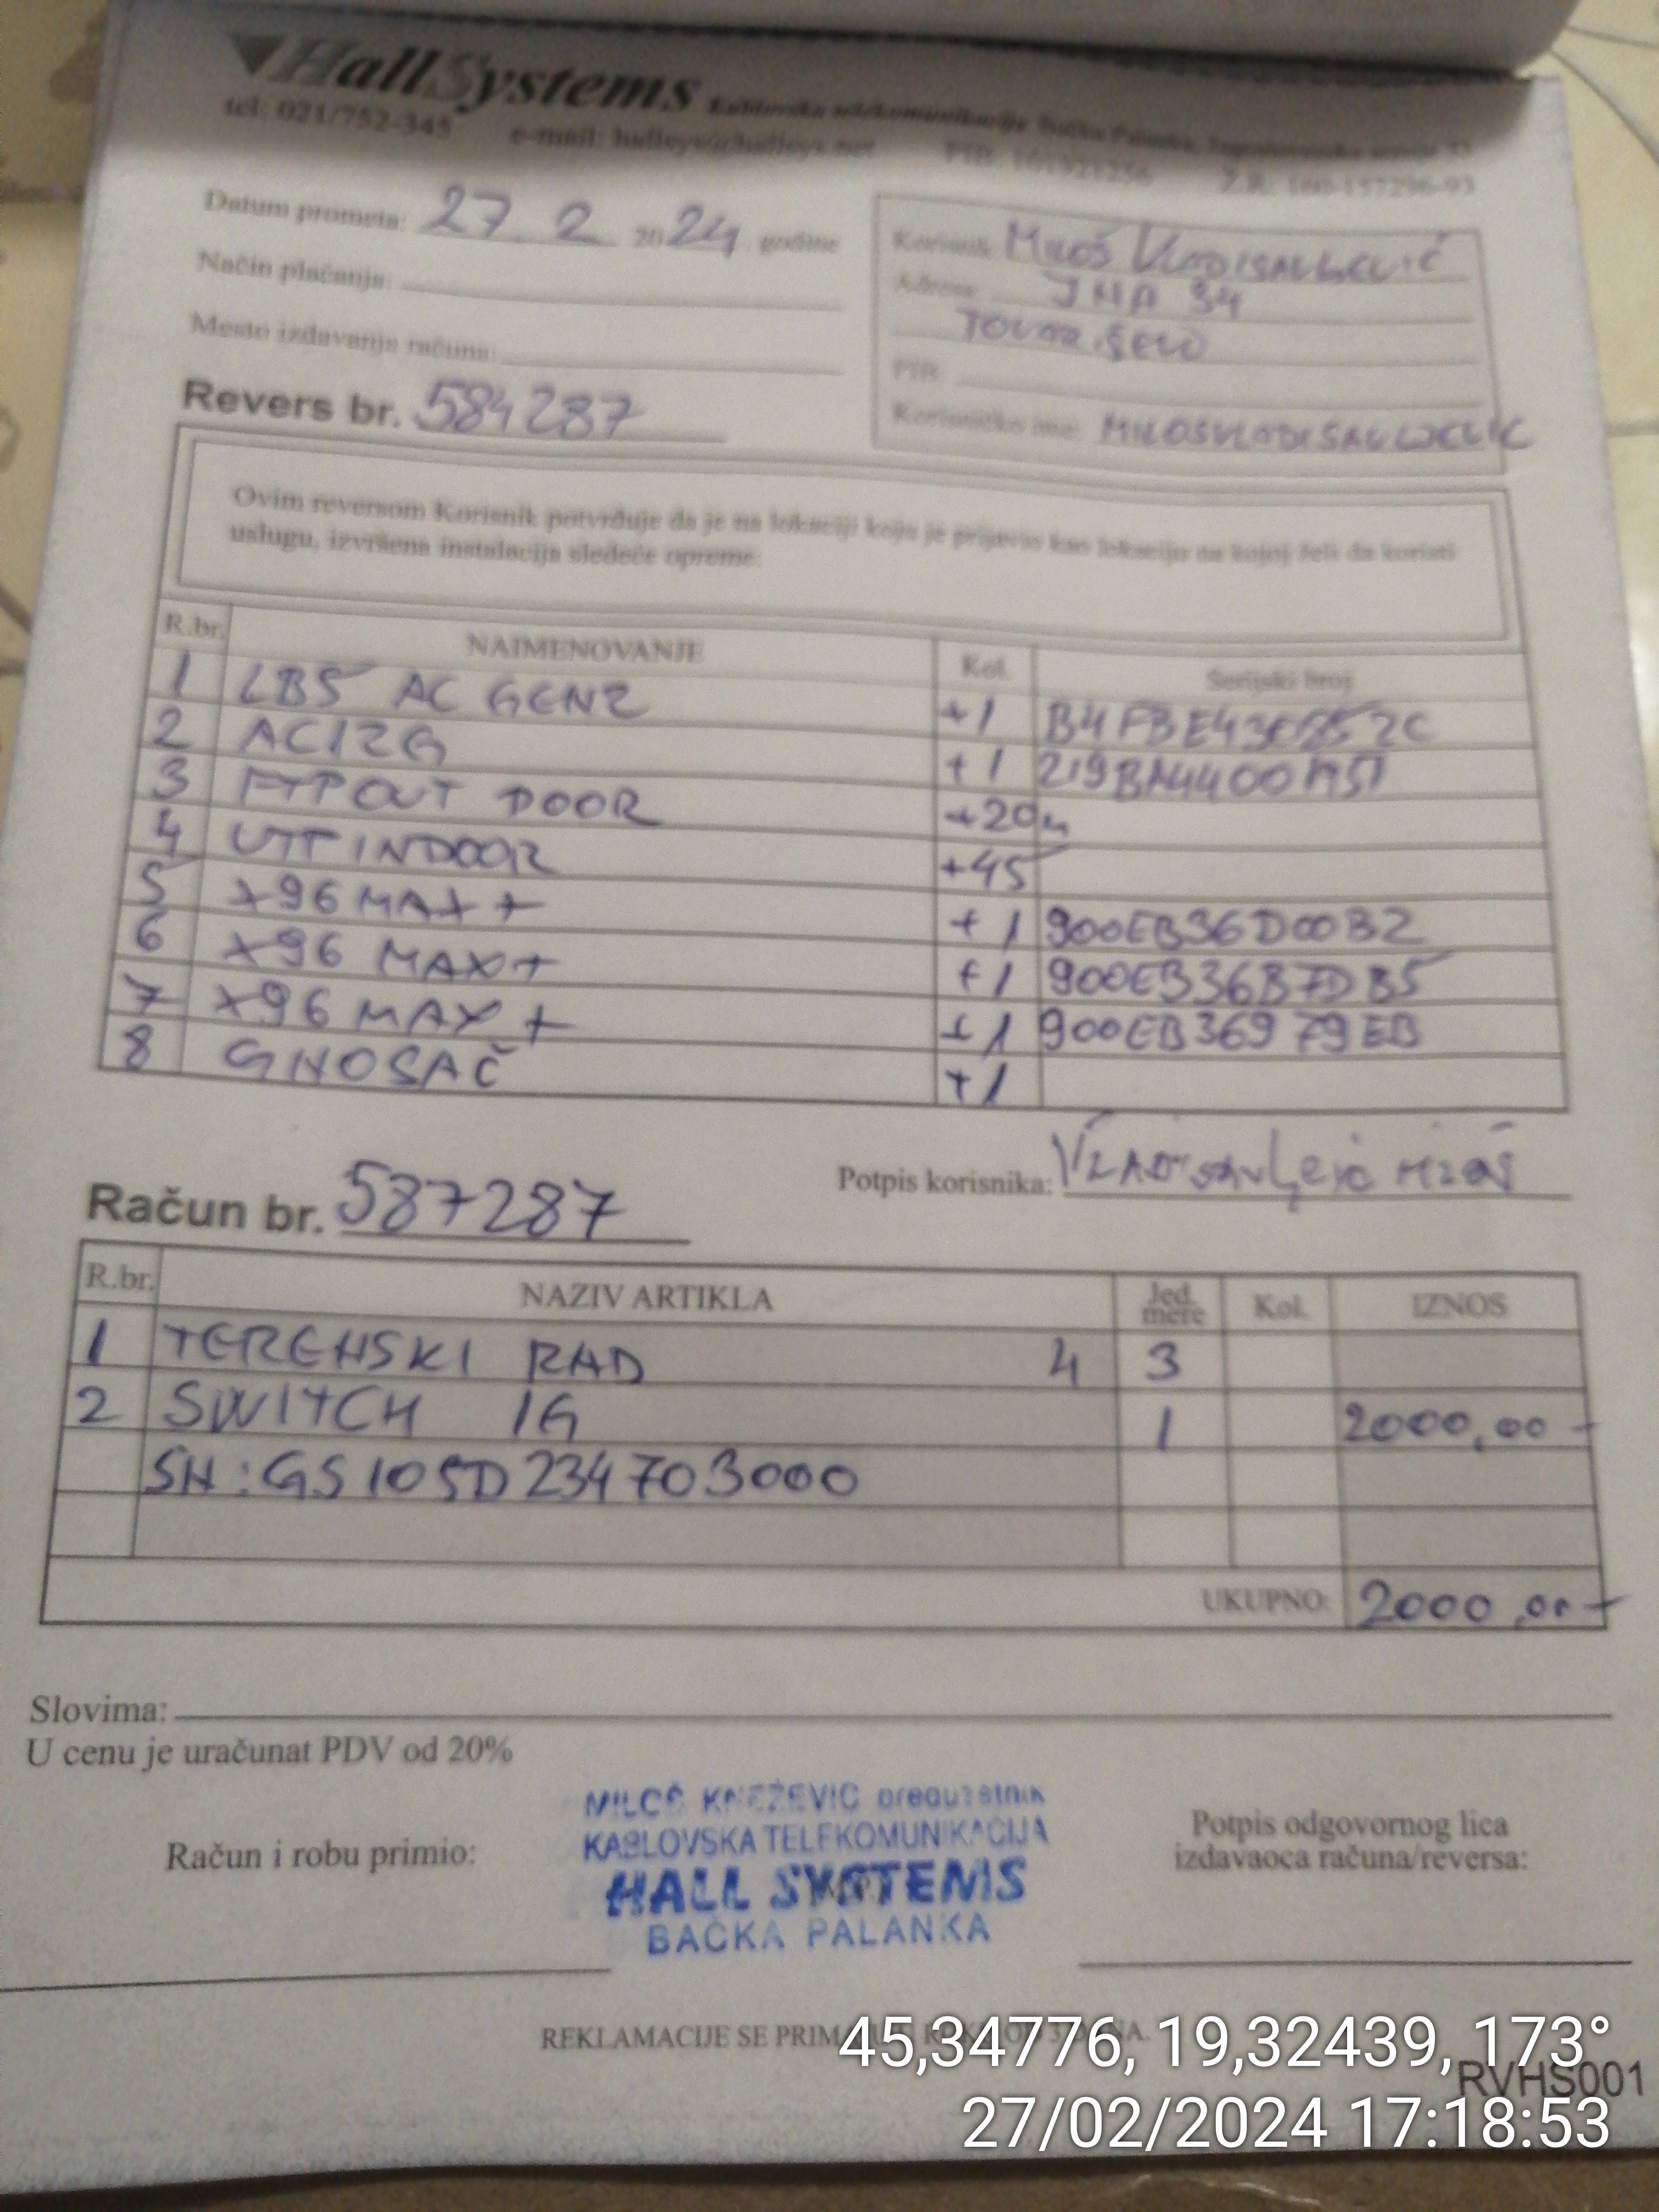 HallSystems Kablovska telekomunikacija Bačka Palanka,
tel: 021/752-345 e-mail: hallsys@hallsys.net PIB: Ž.R. 160-157296-93
Datum prometa: 27. 2 2024 godine
Način plaćanja:
Mesto izdavanja računa:
Korisnik: MILOŠ VLADISAVLJEVIĆ
Adresa JNA 34
TOVARIŠEVO
PIB:
Korisničko ime: MILOSVLADISAVLJEVIC
Revers br. 584287
Ovim reversom Korisnik potvrđuje da je na lokaciji koju je prijavio kao lokaciju na kojoj želi da koristi
uslugu, izvršena instalacija sledeće opreme:
R.br. NAIMENOVANJE Kol. Serijski broj
1 LB5 AC GEN2 +1
2 AC12G +1
3 FTP OUT DOOR +20m
4 UTP INDOOR +45
5 X96 MAX + +1 900EB36D00B2
6 X96 MAX+ +1 900EB36B7DB5
7 X96 MAX + +1 900EB36979EB
8 GNOSAČ +1
Potpis korisnika: Vladisavljević Miloš
Račun br. 587287
R.br. NAZIV ARTIKLA Jed. mere Kol. IZNOS
1 TERENSKI RAD 4 3
2 SWITCH 1G 1 2000,00-
SN:GS105D234703000
UKUPNO: 2000,00-
Slovima:
U cenu je uračunat PDV od 20%
MILOŠ KNEŽEVIĆ preduzetnik
KABLOVSKA TELEKOMUNIKACIJA
HALL SYSTEMS
BAČKA PALANKA
Račun i robu primio:
Potpis odgovornog lica
izdavaoca računa/reversa:
REKLAMACIJE SE
45,34776, 19,32439, 173°
RVHS001
27/02/2024 17:18:53